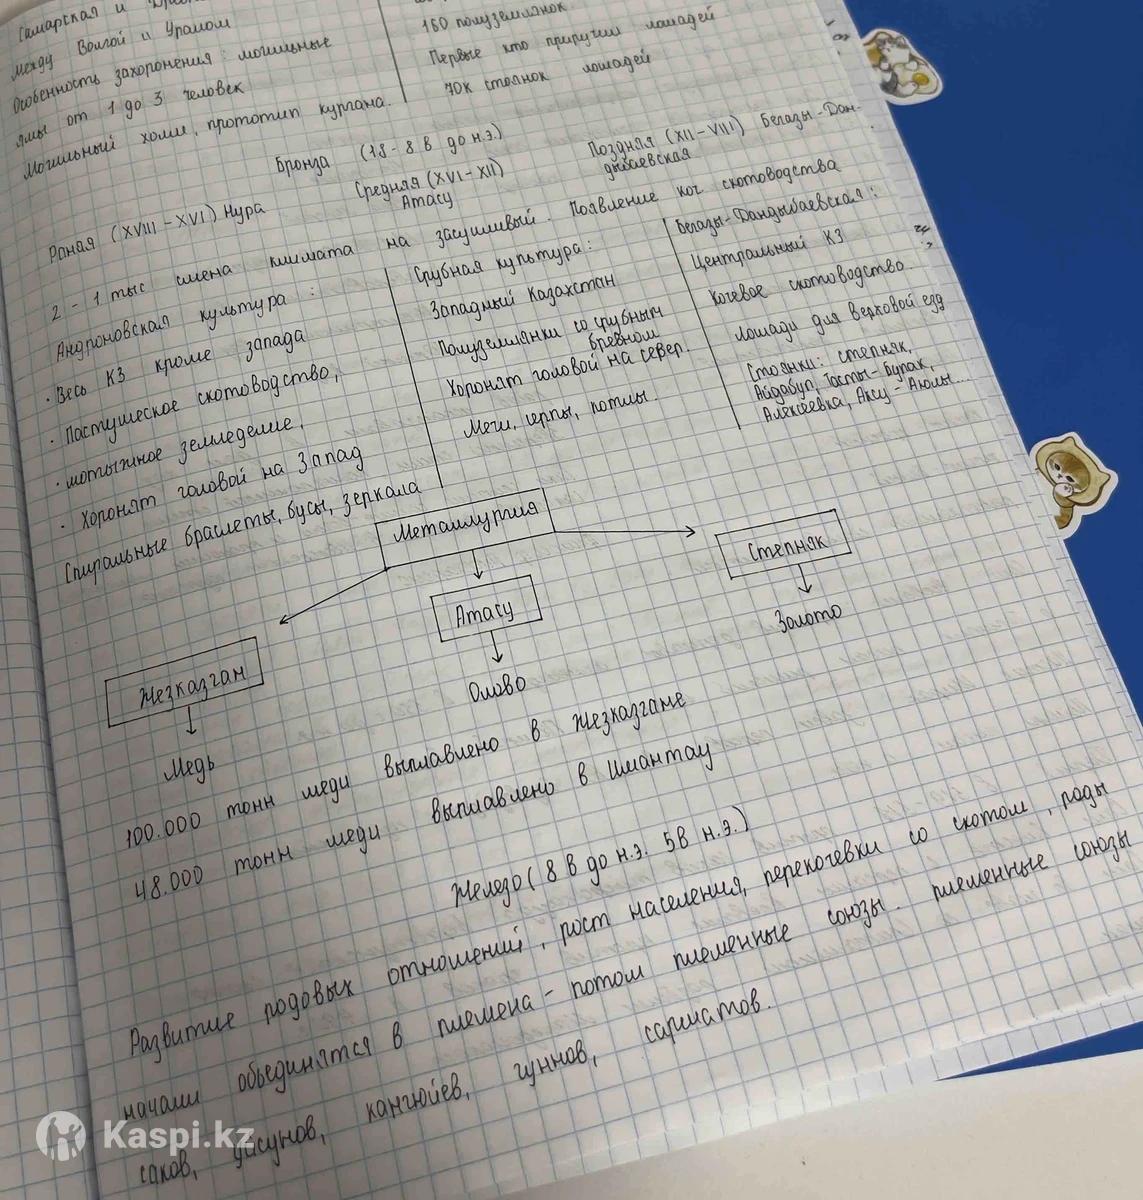 Самарская и
между Волгой и Уралом
Особенность захоронения: могильные
ямы от 1 до 3 человек
Могильный холм, прототип кургана.
160 полуземлянок.
Первые кто приручил лошадей
70к стоянок лошадей
Бронза (18-8 в до н.э.)
Раная (XVIII-XVI) Нура
Средняя (XVI-XII)
Атасу
Поздняя (XII-VIII) Бегазы-Дан-
дыбаевская
2-1 тыс смена климата на засушливый. Появление коч скотоводства
Андроновская культура :
· Весь КЗ кроме запада
· Пастушеское скотоводство,
· мотыжное земледелие.
· Хоронят головой на Запад
Спиральные браслеты, бусы, зеркала
Срубная культура:
Западный Казахстан
Полуземлянки со срубным
бревном
Хоронят головой на север.
Мечи, серпы, котлы.
Бегазы-Дандыбаевская:
Центральный КЗ
Кочевое скотоводство.
Лошади для верховой езд
Стоянки: степняк,
Айдабул, Тасты-Булак,
Алексеевка, Аксу-Аюлы...
Металлургия
Жезказган
Атасу
Степняк
Медь
Олово
Золото
100.000 тонн меди выплавлено в Жезказгане
48.000 тонн меди выплавлено в Имантау
Железо (8 в до н.э. 5в н.э.)
Развитие родовых отношений, рост населения, перекочевки со скотом, роды
начали объединятся в племена - потом племенные союзы. племенные союзы
саков, уйсунов, кангюйев, гуннов, сарматов.
Kaspi.kz